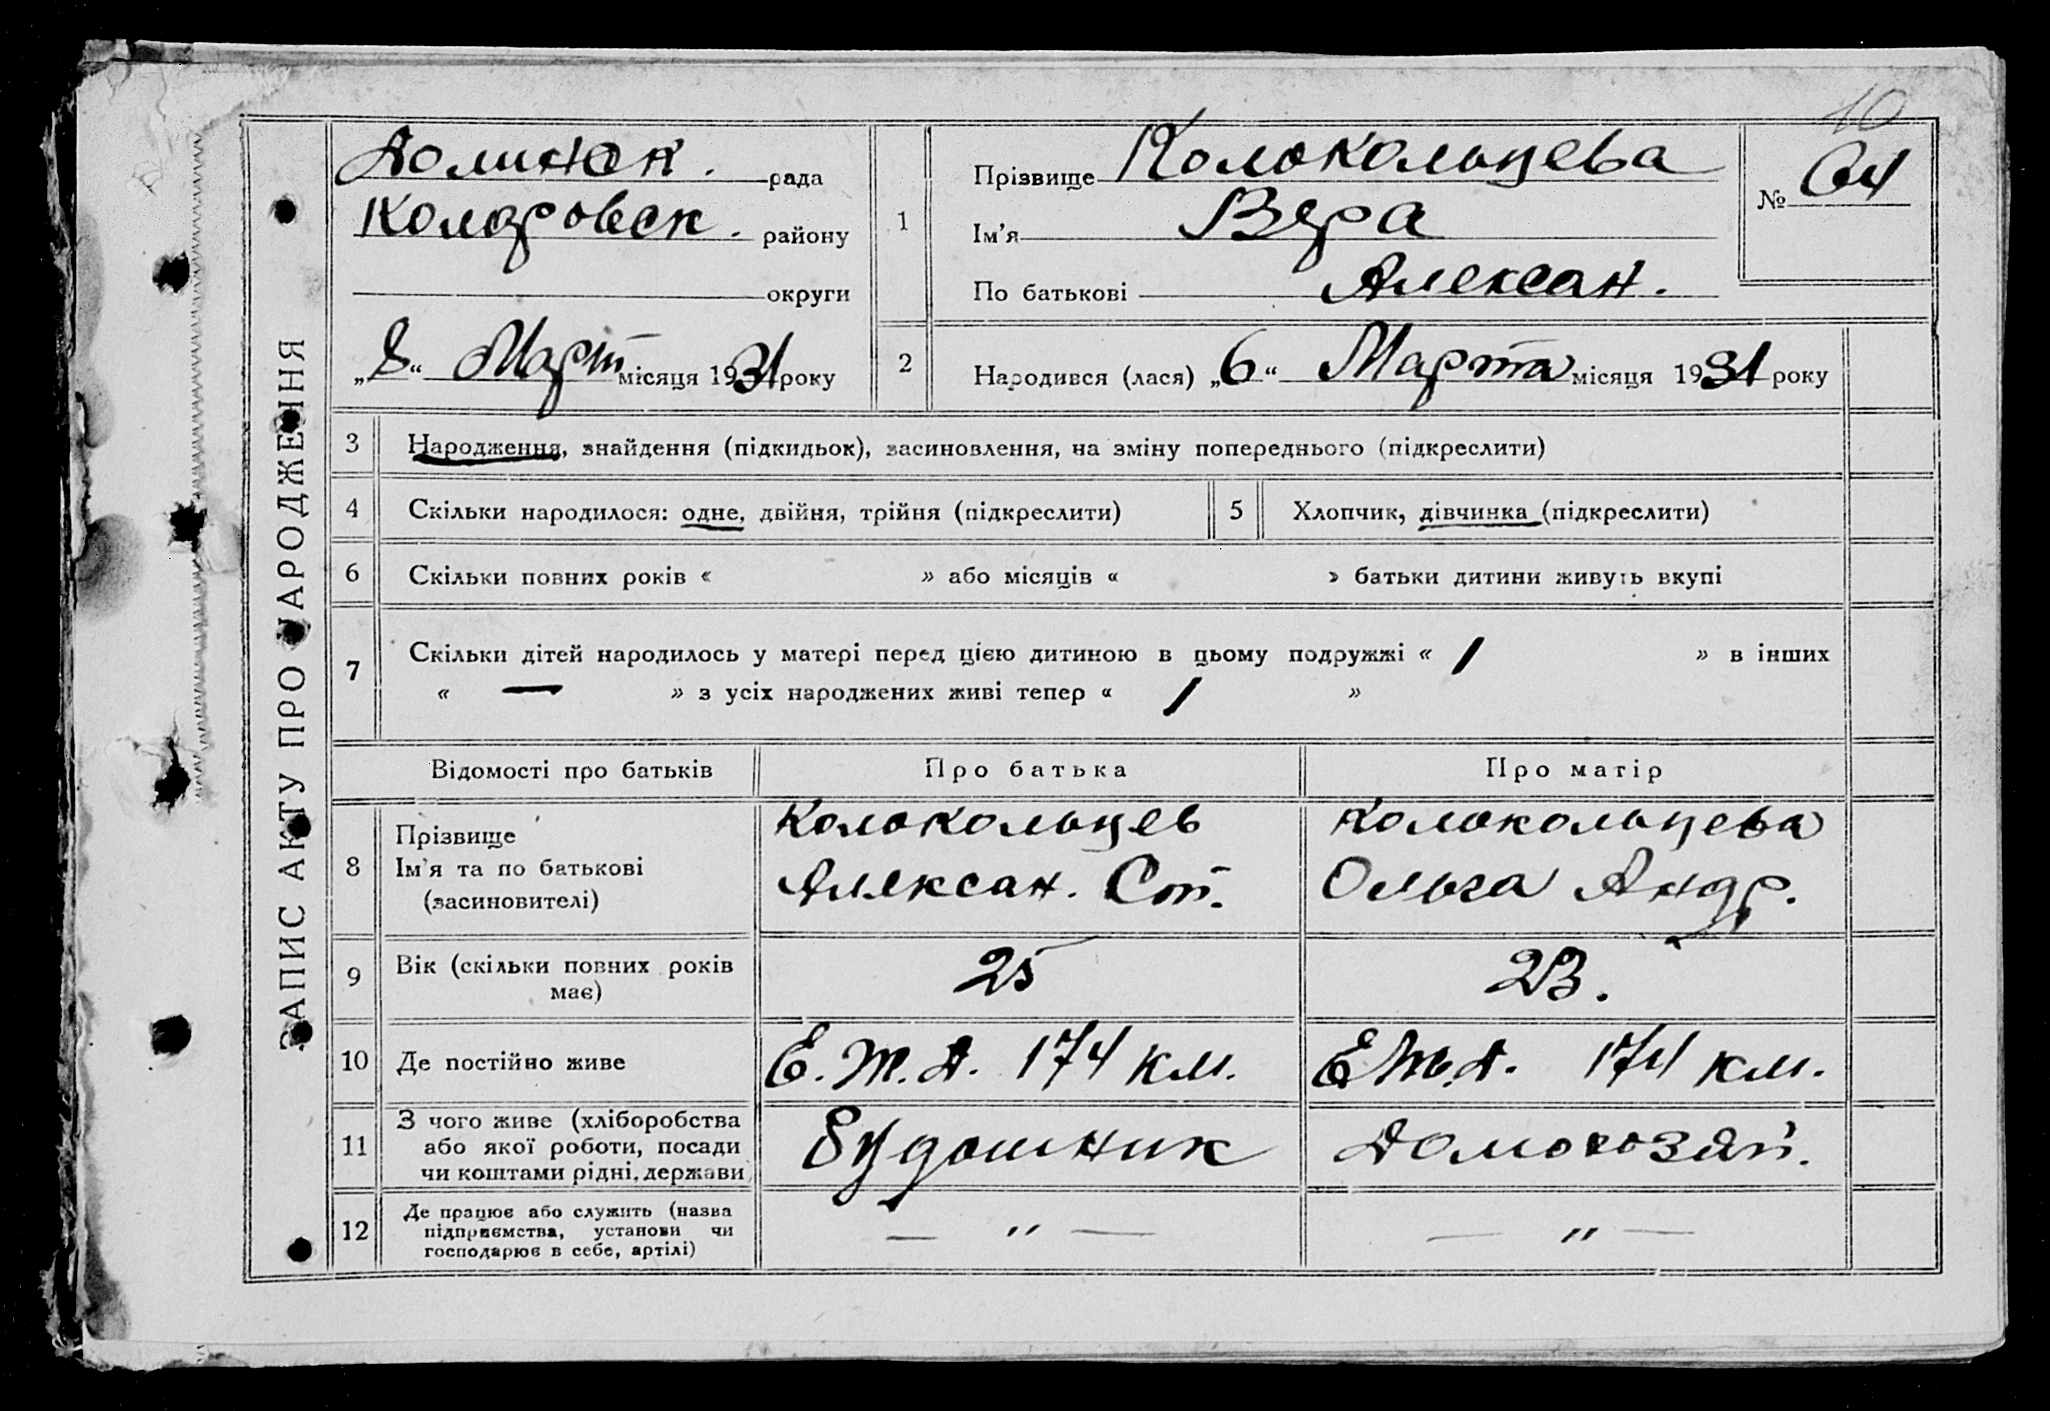 10
ЗАПИС АКТУ ПРО НАРОДЖЕННЯ
рада
Коларовск. району
округи
„8“ Март місяця 1931 року
1
Прізвище Колокольцева
Ім’я Вера
По батькові Алексан.
№ 64
2
Народився (лася) „6“ Марта місяця 1931 року
3 Народження, знайдення (підкидьок), засиновлення, на зміну попереднього (підкреслити)
4 Скільки народилося: одне, двійня, трійня (підкреслити)
5 Хлопчик, дівчинка (підкреслити)
6 Скільки повних років « » або місяців « » батьки дитини живуть вкупі
7 Скільки дітей народилось у матері перед цією дитиною в цьому подружжі « 1 » в інших
« — » з усіх народжених живі тепер « 1 »
Відомості про батьків Про батька Про матір
8 Прізвище
Ім’я та по батькові
(засиновителі)
Колокольцев
Алексан. Ст.
Колокольцева
Ольга Андр.
9 Вік (скільки повних років
має)
25
23.
10 Де постійно живе
Е.Ж.Д. 174 км.
Е.Ж.Д. 174 км.
11 З чого живе (хліборобства
або якої роботи, посади
чи коштами рідні, держави)
Будошник
Домохозяй.
12 Де працює або служить (назва
підприємства, установи чи
господарює в себе, артілі)
— " —
— " —